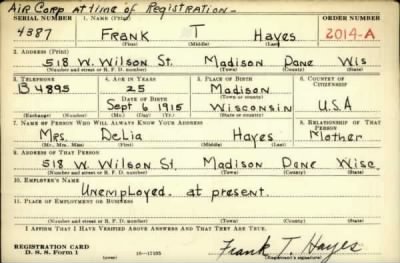 Air Corp at time of Registration -
SERIAL NUMBER 1. NAME (Print) ORDER NUMBER
4387 FRANK T Hayes 2014-A
(First) (Middle) (Last)
2. ADDRESS (Print)
518 W. Wilson St. Madison Dane Wis
(Number and street or R. F. D. number) (Town) (County) (State)
3. TELEPHONE 4. AGE IN YEARS 5. PLACE OF BIRTH 6. COUNTRY OF CITIZENSHIP
B 4895 25 Madison
(Town)
DATE OF BIRTH
Sept 6 1915 Wisconsin U.S.A
(Exchange) (Number) (Mo.) (Day) (Yr.) (State or country)
7. NAME OF PERSON WHO WILL ALWAYS KNOW YOUR ADDRESS 8. RELATIONSHIP OF THAT PERSON
Mrs. Delia Hayes Mother
(Mr., Mrs., Miss) (First) (Middle) (Last)
9. ADDRESS OF THAT PERSON
518 W. Wilson St. Madison Dane Wisc.
(Number and street or R. F. D. number) (Town) (County) (State)
10. EMPLOYER'S NAME
Unemployed. at present.
11. PLACE OF EMPLOYMENT OR BUSINESS
(Number and street or R. F. D. number) (Town) (County) (State)
I AFFIRM THAT I HAVE VERIFIED ABOVE ANSWERS AND THAT THEY ARE TRUE.
REGISTRATION CARD
D. S. S. FORM 1 (over) 16—17105 Frank T. Hayes
(Registrant's signature)